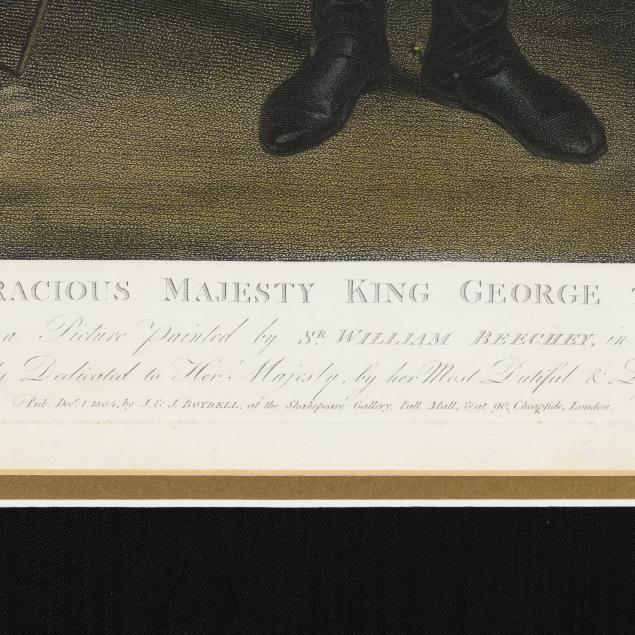 RACIOUS MAJESTY KING GEORGE
a Picture painted by Sr. WILLIAM BEECHEY, in
Dedicated to Her Majesty, by her Most Dutiful &
Pub. Decr. 1. 1804, by J. & J. BOYDELL, at the Shakspeare Gallery, Pall Mall, & at 90, Cheapside, London.